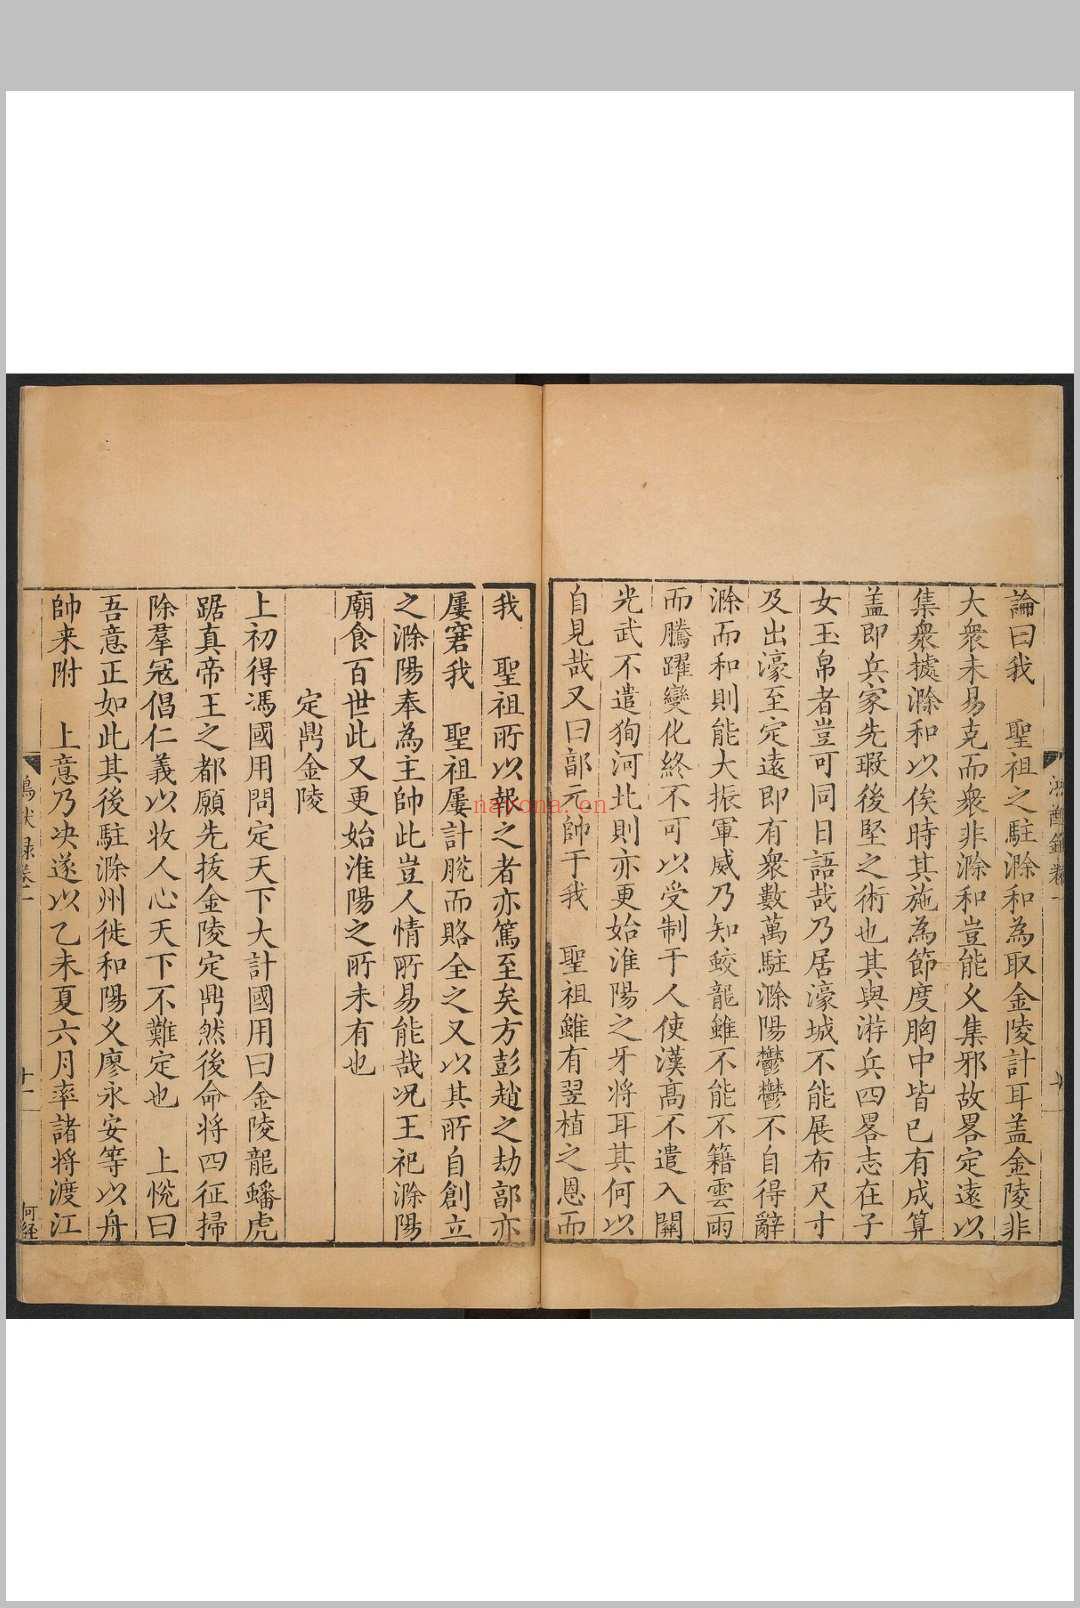 論曰我　聖祖之駐滁和為取金陵計耳盖金陵非
大衆未易克而衆非滁和豈能乆集邪故畧定遠以
集衆據滁和以俟時其施為節度胸中皆已有成算
盖即兵家先瑕後堅之術也其與游兵四畧志在子
女玉帛者豈可同日語哉乃居濠城不能展布尺寸
及出濠至定遠即有衆數萬駐滁陽鬱鬱不自得辭
滁而和則能大振軍威乃知蛟龍雖不能不籍雲雨
而騰躍變化終不可以受制于人使漢髙不遣入關
光武不遣狥河北則亦更始淮陽之牙將耳其何以
自見哉又曰郭元帥于我　聖祖雖有翌植之恩而
我　聖祖所以報之者亦篤至矣方彭趙之劫郭亦
屢窘我　聖祖屢計脫而賂全之又以其所自創立
之滁陽奉為主帥此豈人情所易能哉况王祀滁陽
廟食百世此又更始淮陽之所未有也
定鼎金陵
上初得馮國用問定天下大計國用曰金陵龍蟠虎
踞真帝王之都願先拔金陵定鼎然後命将四征掃
除羣冦倡仁義以收人心天下不難定也　上悅曰
吾意正如此其後駐滁州徙和陽乆廖永安等以舟
帥来附　上意乃决遂以乙未夏六月率諸将渡江
鴻猷録卷一
十一
何経
nayona.cn